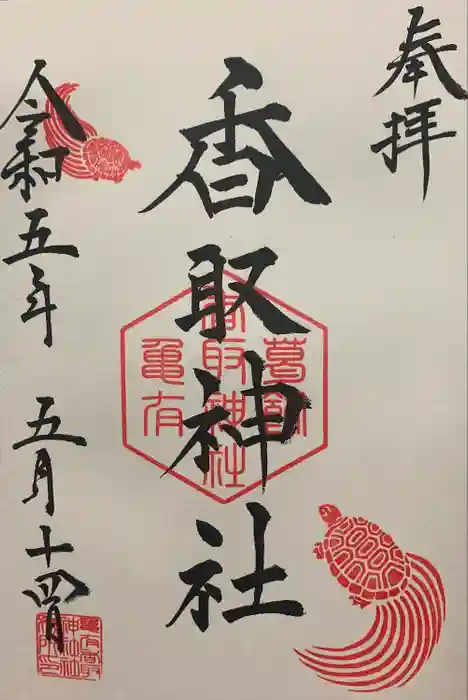 奉拝
香取神社
葛飾
香取神社
亀有
令和五年 五月十四日